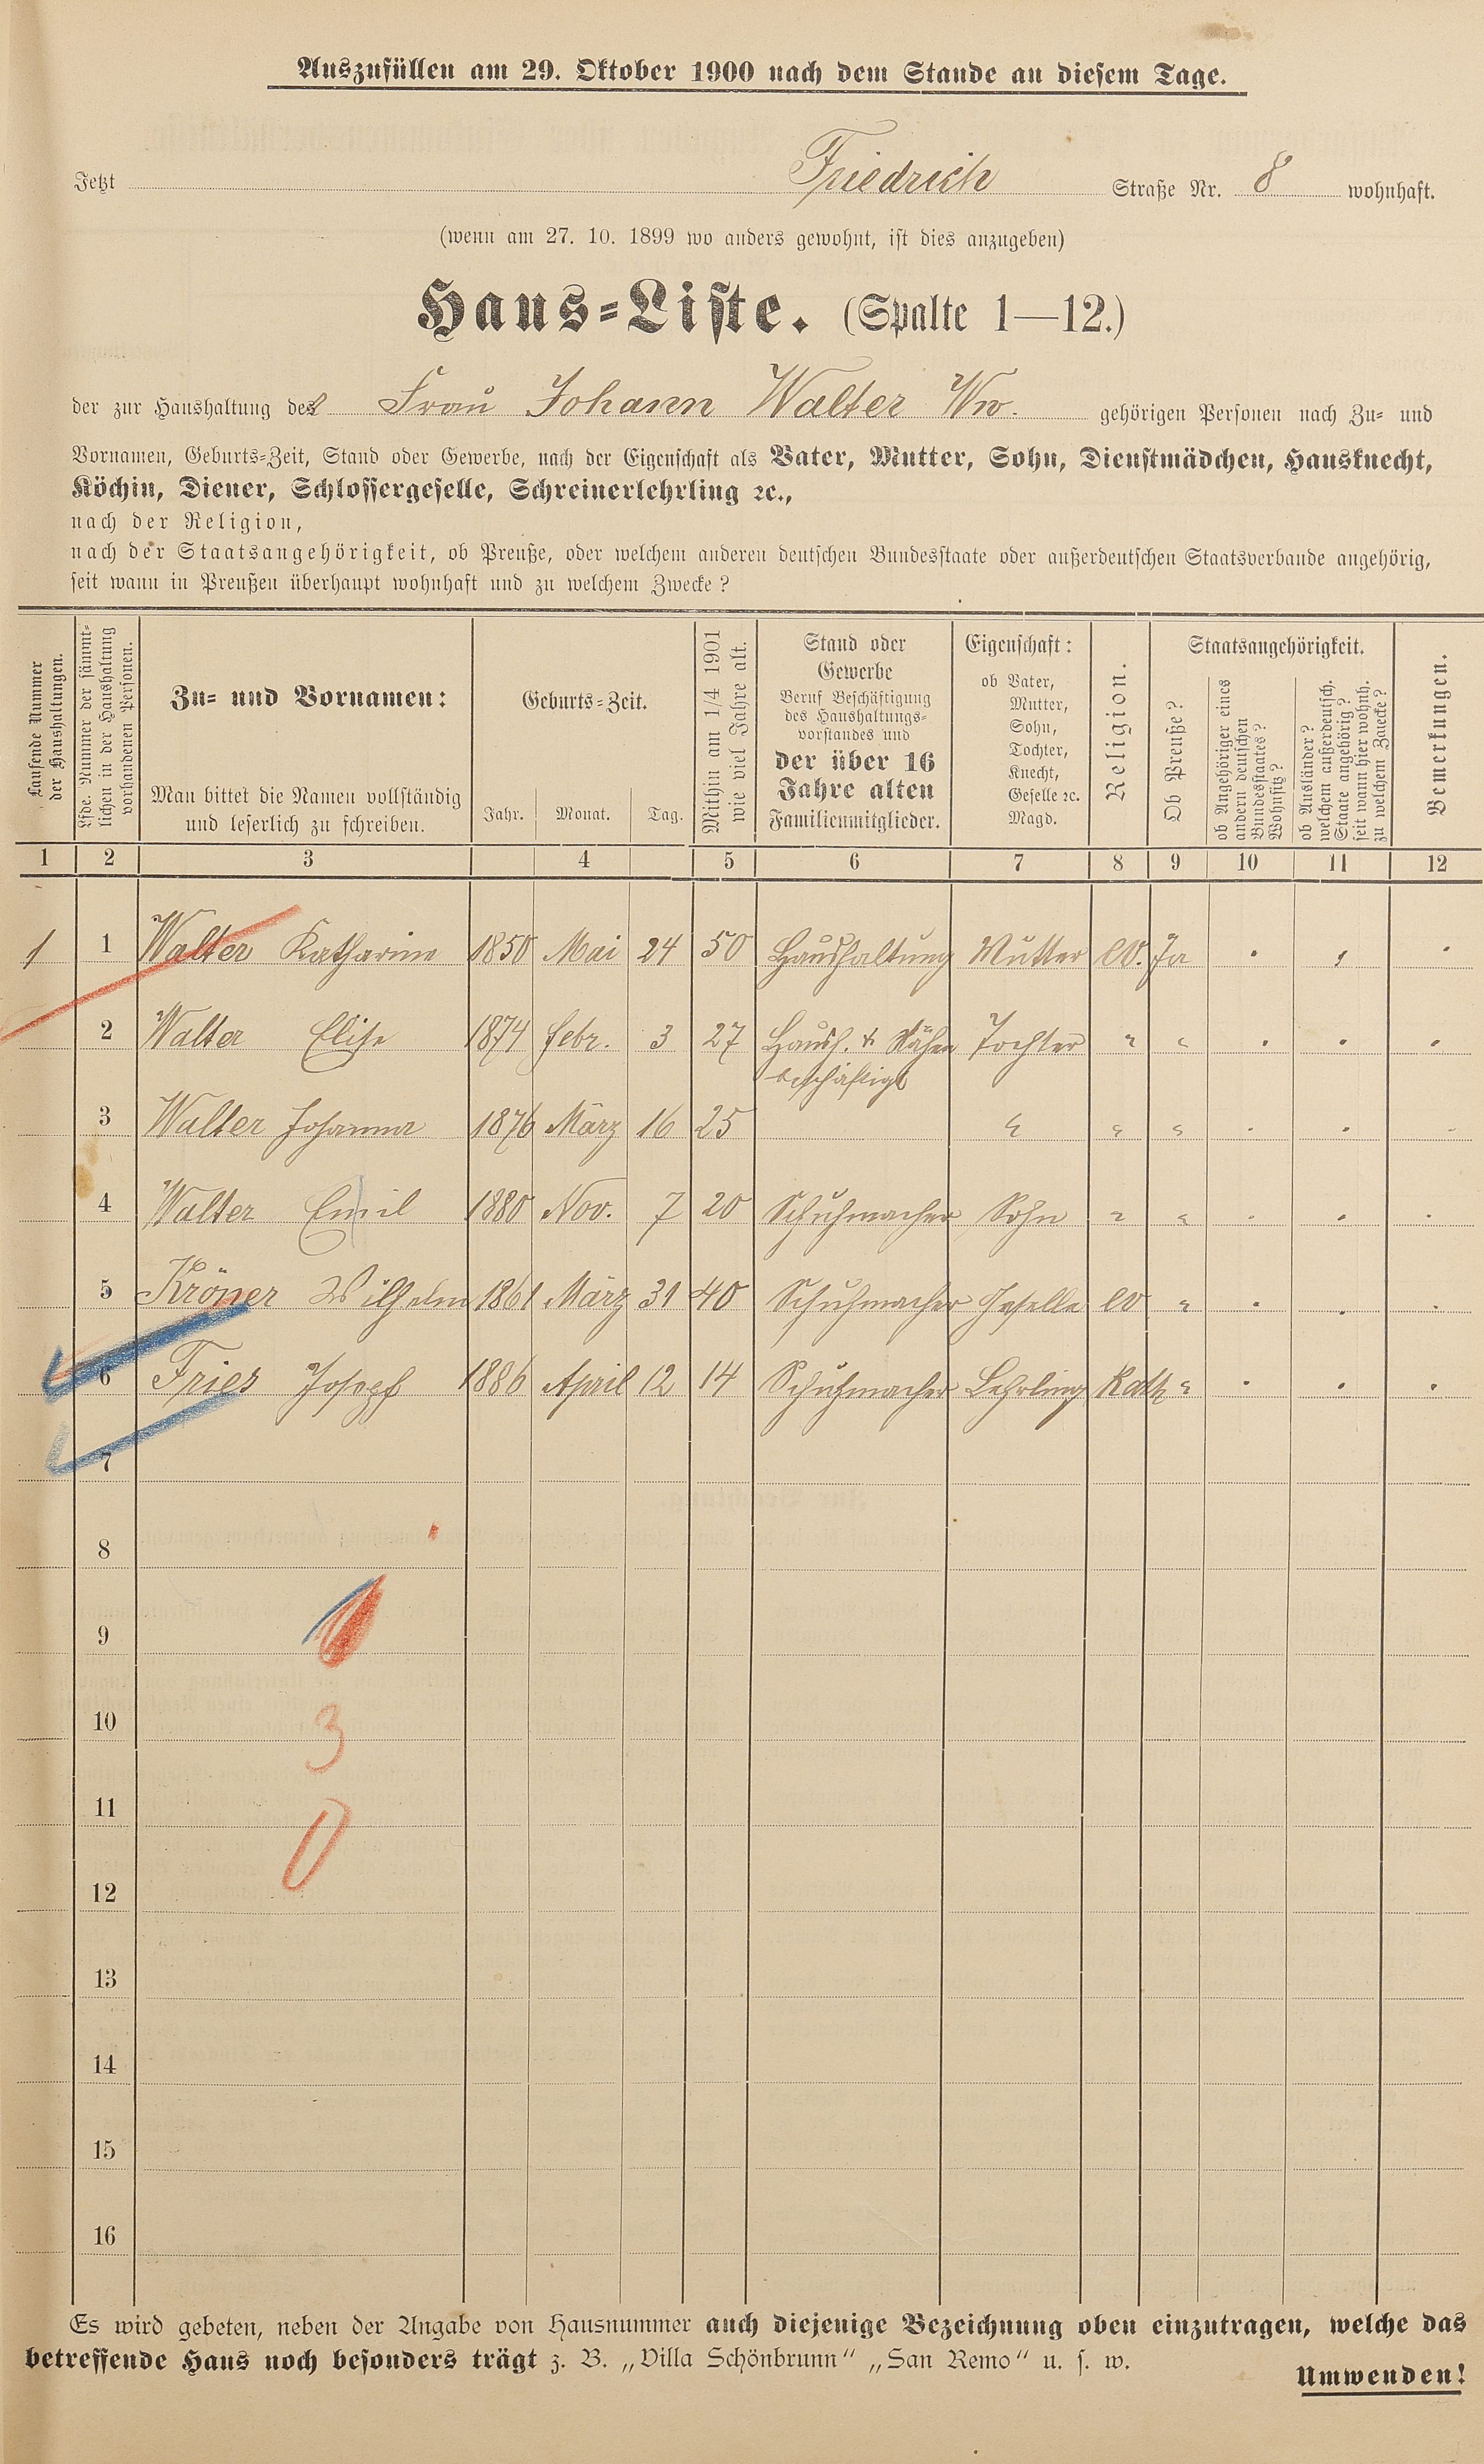 Auszufüllen am 29. Oktober 1900 nach dem Stande an diesem Tage.
Jetzt Friedrich Straße Nr. 8 wohnhaft.
(wenn am 27. 10. 1899 wo anders gewohnt, ist dies anzugeben)
Haus-Liste. (Spalte 1—12.)
der zur Haushaltung der Frau Johann Walter Ww. gehörigen Personen nach Zu- und
Vornamen, Geburts-Zeit, Stand oder Gewerbe, nach der Eigenschaft als Vater, Mutter, Sohn, Dienstmädchen, Hausknecht,
Köchin, Diener, Schlossergeselle, Schreinerlehrling ꝛc.,
nach der Religion,
nach der Staatsangehörigkeit, ob Preuße, oder welchem anderen deutschen Bundesstaate oder außerdeutschen Staatsverbande angehörig,
seit wann in Preußen überhaupt wohnhaft und zu welchem Zwecke?
Laufende Nummer
der Haushaltungen.
Lfde. Nummer der sämmt-
lichen in der Haushaltung
vorhandenen Personen.
Zu- und Vornamen:
Man bittet die Namen vollständig
und leserlich zu schreiben.
Geburts-Zeit.
Jahr. Monat. Tag.
Mithin am 1/4 1901
wie viel Jahre alt.
Stand oder
Gewerbe
Beruf Beschäftigung
des Haushaltungs-
vorstandes und
der über 16
Jahre alten
Familienmitglieder.
Eigenschaft:
ob Vater,
Mutter,
Sohn,
Tochter,
Knecht,
Geselle ꝛc.
Magd.
Religion.
Staatsangehörigkeit.
Ob Preuße?
ob Angehöriger eines
andern deutschen
Bundesstaates?
Wohnsitz?
ob Ausländer?
welchem außerdeutsch.
Staate angehörig?
seit wann hier wohnh.
zu welchem Zwecke?
Bemerkungen.
1 2 3 4 5 6 7 8 9 10 11 12
1 1 Walter Katharine 1850 Mai 24 50 Haushaltung Mutter ev. Ja
2 Walter Elise 1874 febr. 3 27 Haush. & Nähen Tochter " "
beschäftigt
3 Walter Johanna 1876 März 16 25 " " "
4 Walter Emil 1880 Nov. 7 20 Schuhmacher Sohn " "
5 Kröner Wilhelm 1861 März 31 40 Schuhmacher Geselle ev "
6 Fries Josepf 1886 April 12 14 Schuhmacher Lehrling Kath "
7
8
9
10 3
11
12 0
13
14
15
16
Es wird gebeten, neben der Angabe von Hausnummer auch diejenige Bezeichnung oben einzutragen, welche das
betreffende Haus noch besonders trägt z. B. „Villa Schönbrunn“ „San Remo“ u. s. w.
Umwenden!